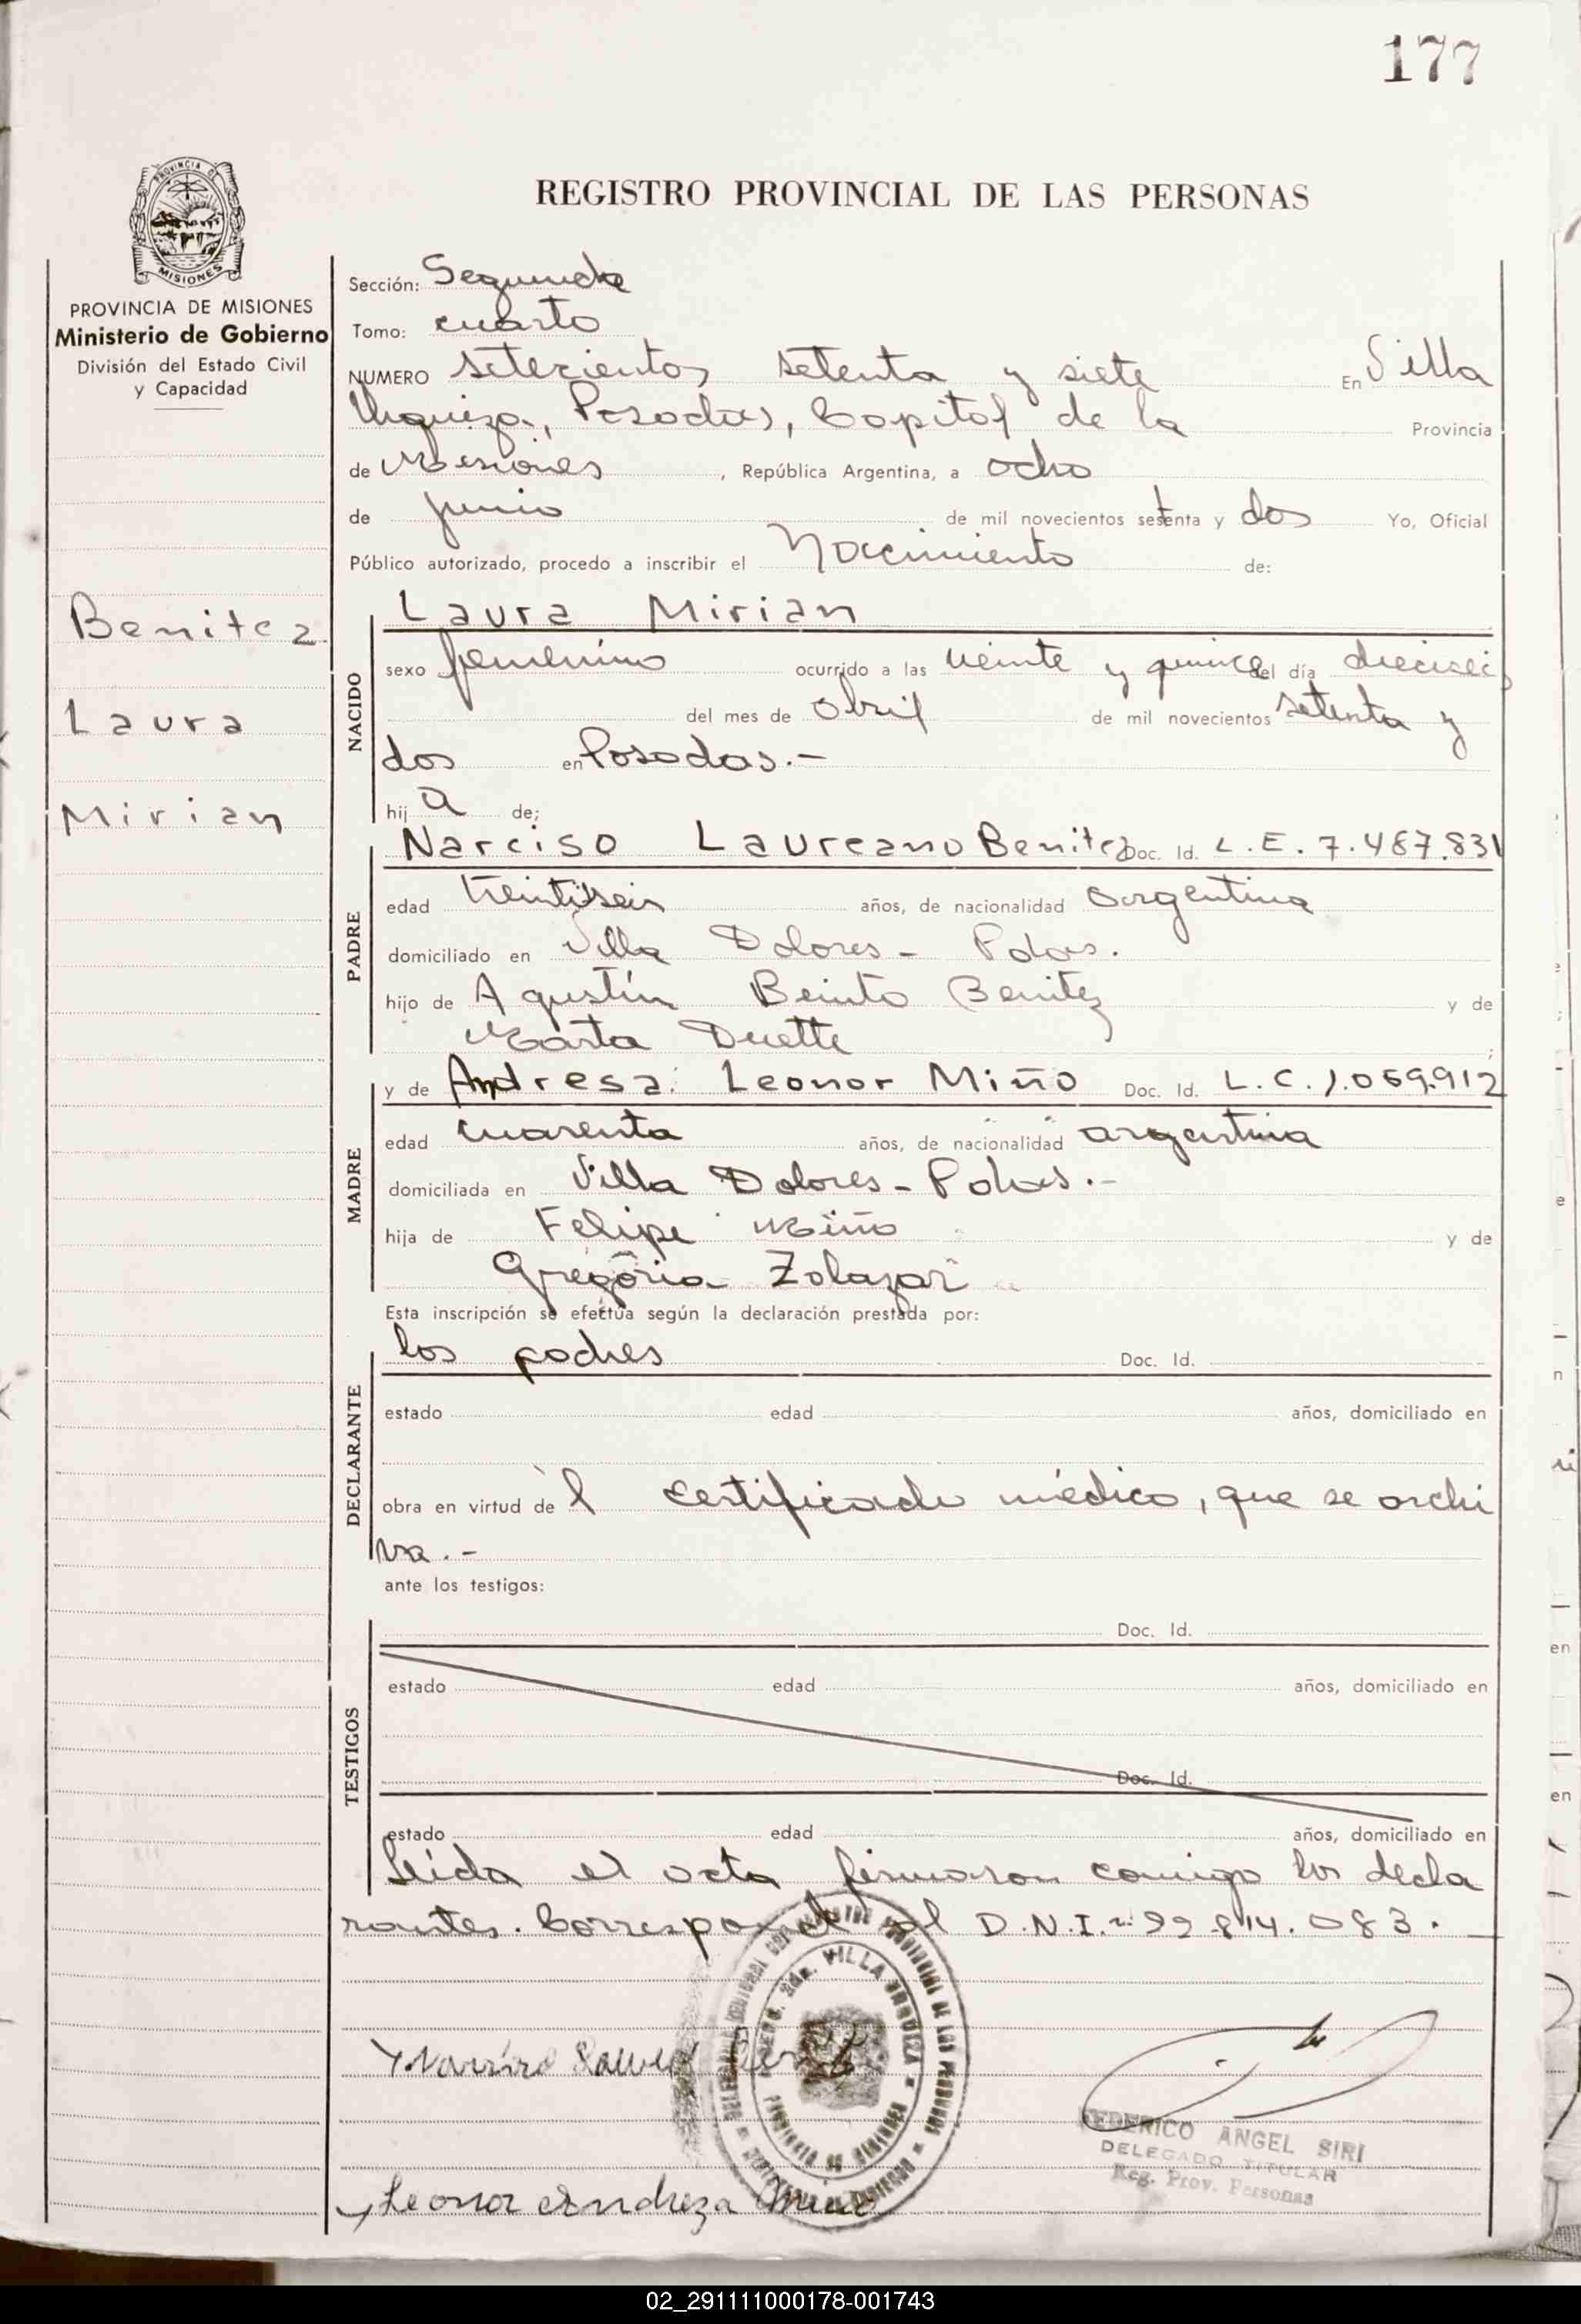 177
PROVINCIA DE
MISIONES
REGISTRO PROVINCIAL DE LAS PERSONAS
PROVINCIA DE MISIONES
Ministerio de Gobierno
División del Estado Civil
y Capacidad
Benitez
Laura
Mirian
Sección: Segunda
Tomo: cuarto
NUMERO setecientos setenta y siete En Villa
Urquiza, Posadas, Capital de la Provincia
de Misiones, República Argentina, a ocho
de junio de mil novecientos setenta y dos Yo, Oficial
Público autorizado, procedo a inscribir el Nacimiento de:
Laura Mirian
NACIDO
sexo femenino ocurrido a las veinte y quince del día dieciseis
del mes de abril de mil novecientos setenta y
dos en Posadas.-
hija de;
PADRE
Narciso Laureano Benitez Doc. Id. L.E. 7.487.831
edad treintiseis años, de nacionalidad argentina
domiciliado en Villa Dolores - Pdas.
hijo de Agustín Beinto Benitez y de
Marta Duette;
MADRE
y de Andresa Leonor Miño Doc. Id. L.C. 1.059.912
edad cuarenta años, de nacionalidad argentina
domiciliada en Villa Dolores - Pdas.-
hija de Felipe Miño y de
Gregoria Zolazar
Esta inscripción se efectúa según la declaración prestada por:
DECLARANTE
los padres Doc. Id.
estado edad años, domiciliado en
obra en virtud del certificado médico, que se archi
va.-
ante los testigos:
TESTIGOS
Doc. Id.
estado edad años, domiciliado en
Doc. Id.
estado edad años, domiciliado en
Leida el acta firmaron comigo los decla
rantes. Corresponde al D.N.I. nº 22.814.083.
SECC. 2da. VILLA URQUIZA
PROVINCIA DE MISIONES
FEDERICO ANGEL SIRI
DELEGADO TITULAR
Reg. Prov. Personas
Leonor Andreza Miño
02_291111000178-001743